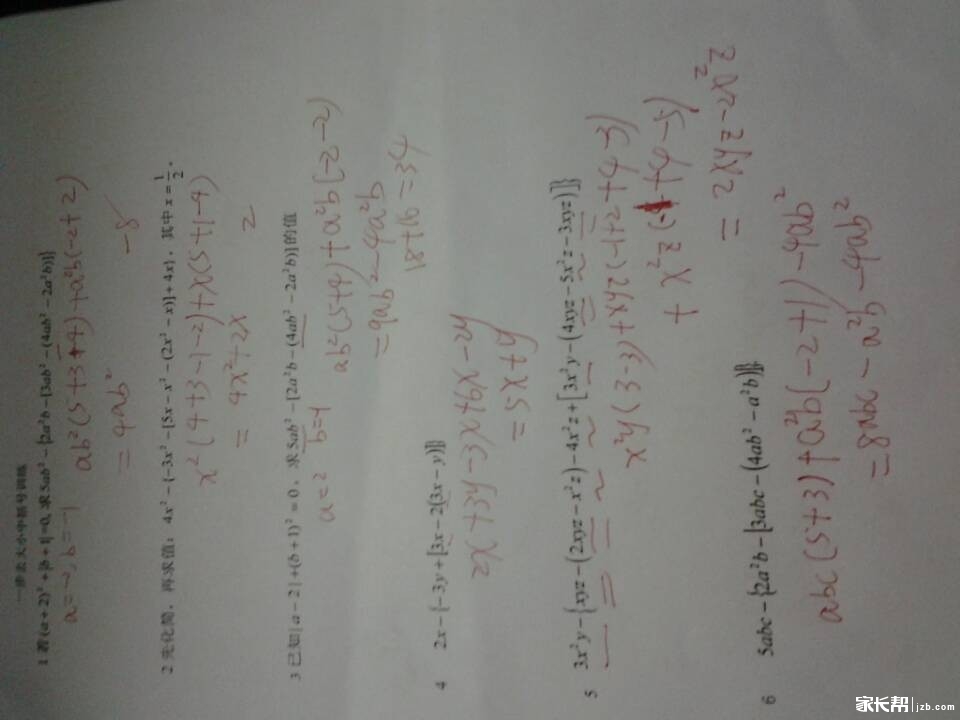 一步去大小中括号训练
1 若(a+2)²+|b+1|=0, 求5ab²-{2a²b-[3ab²-(4ab²-2a²b)]}
a=-2, b=-1 ab²(5+3-4)+a²b(-2+2)
=4ab² -8
2 先化简，再求值：4x²-{-3x²-[5x-x²-(2x²-x)]+4x}，其中x=1/2.
x²(4+3-1-2)+x(5+1-4)
= 4x²+2x 2
3 已知|a-2|+(b+1)²=0，求5ab²-[2a²b-(4ab²-2a²b)]的值
a=2 b=-1 ab²(5+4)+a²b(-2-2)
=9ab²-4a²b
18+16=34
4 2x-{-3y+[3x-2(3x-y)]}
2x+3y-3x+6x-2y
=5x+y
5 3x²y-{xyz-(2xyz-x²z)-4x²z+[3x²y-(4xyz-5x²z-3xyz)]}
x²y(3-3)+xyz(-1+2+4-3)
+x²z(-1+4-5)
=2xyz-2x²z
6 5abc-{2a²b-[3abc-(4ab²-a²b)]}
abc(5+3)+a²b(-2+1)-4ab²
=8abc-a²b-4ab²
家长帮 jzb.com